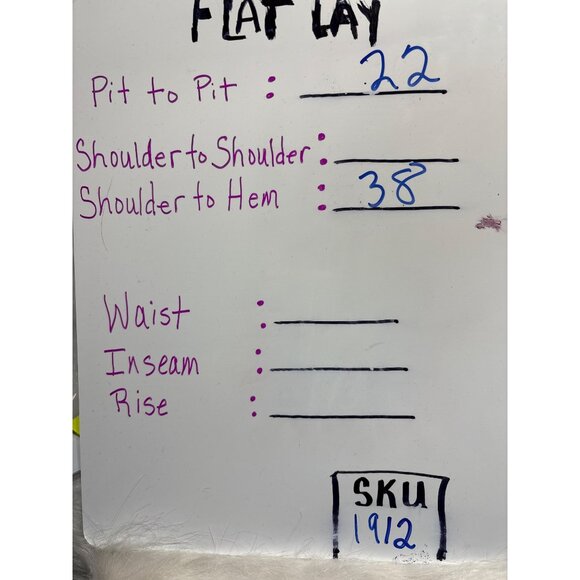 FLAT LAY
Pit to Pit : 22
Shoulder to Shoulder :
Shoulder to Hem : 38
Waist :
Inseam :
Rise :
SKU
1912